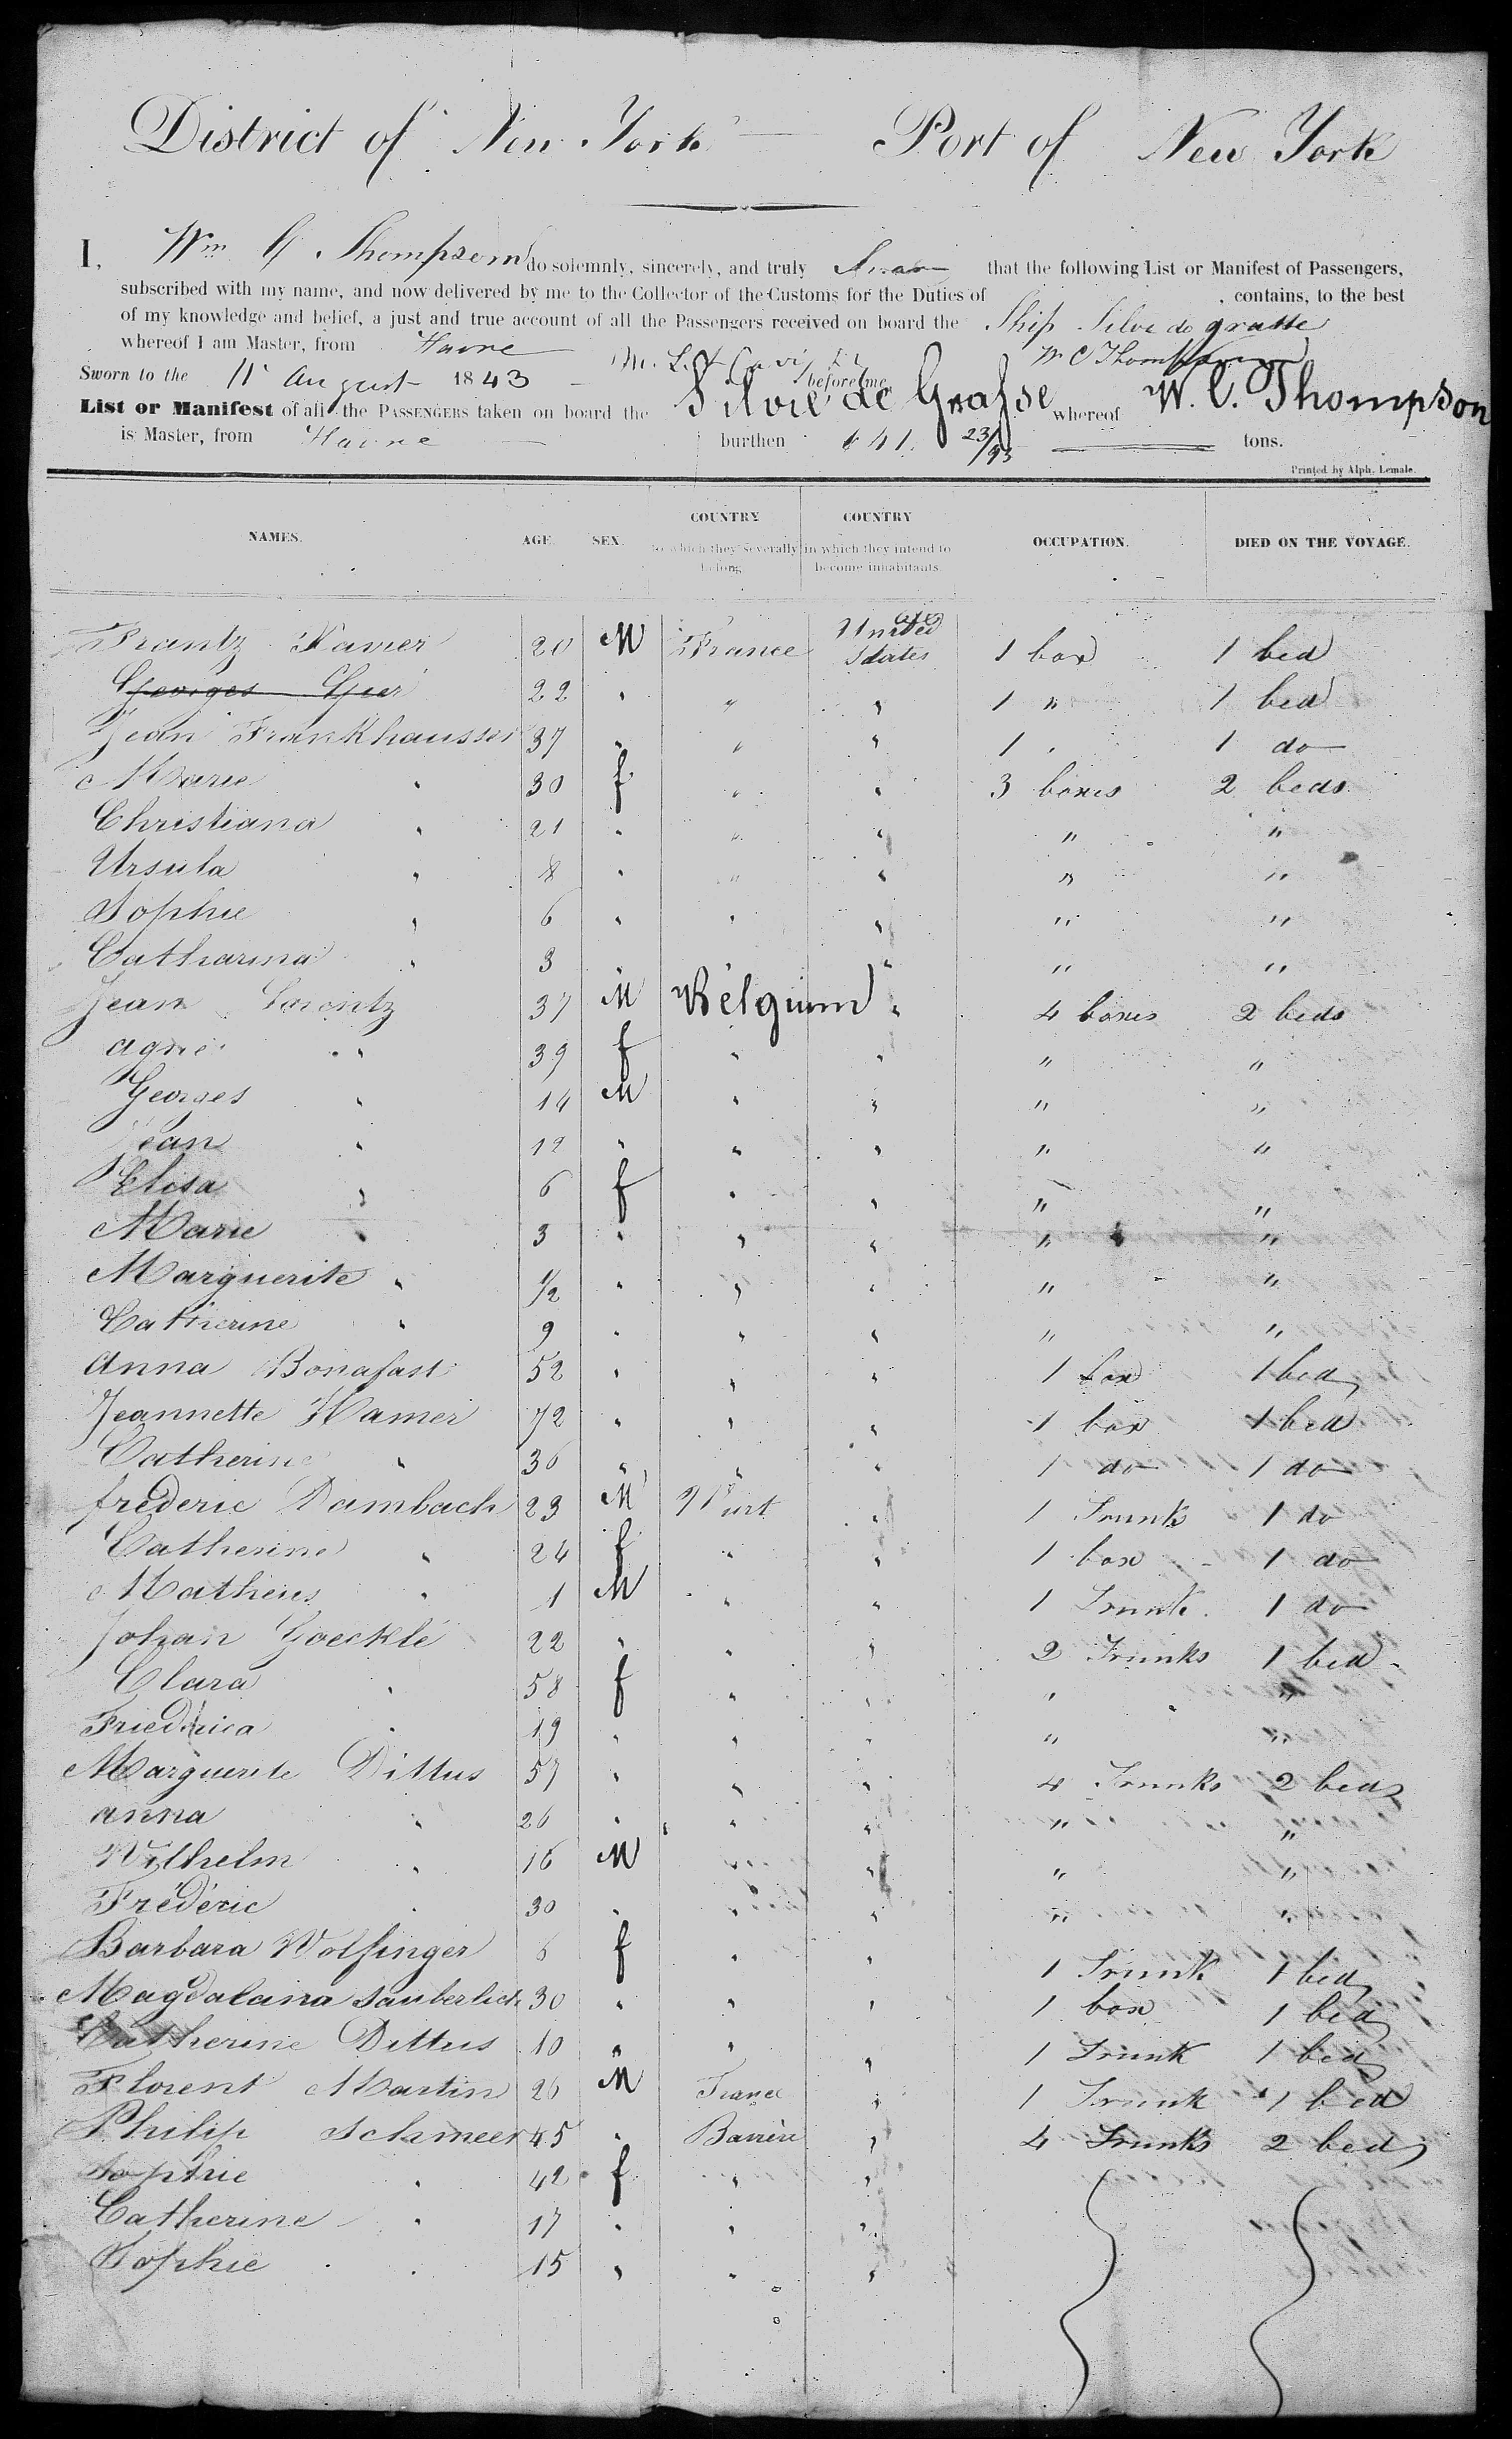 District of New York Port of New York
I, Wm C Thompson do solemnly, sincerely, and truly Swear that the following List or Manifest of Passengers,
subscribed with my name, and now delivered by me to the Collector of the Customs for the Duties of , contains, to the best
of my knowledge and belief, a just and true account of all the Passengers received on board the Ship Silvie de grasse
whereof I am Master, from Havre W C Thompson
Sworn to the 11 August 1843 before me,
List or Manifest of all the PASSENGERS taken on board the Silvie de Grasse whereof W. C. Thompson
is Master, from Havre burthen 641. 23/95 tons.
Printed by Alph. Lemale.
NAMES. AGE. SEX. COUNTRY to which they severally belong COUNTRY in which they intend to become inhabitants OCCUPATION. DIED ON THE VOYAGE.
Frantz Xavier 20 M France United States 1 box 1 bed
Georges Gyer 22 " " " 1 " 1 bed
Jean Frankhausser 37 " " " 1 " 1 do
Marie " 30 f " " 3 boxes 2 beds
Christiana " 21 " " " " "
Ursula " 8 " " " " "
Sophie " 6 " " " " "
Catharina " 3 " " " "
Jean Lorentz 37 M Belgium " 4 boxes 2 beds
agne " 39 f " " " "
Georges " 14 M " " " "
Jean " 12 " " " " "
Elisa " 6 f " " " "
Marie " 3 " " " " "
Marguerite " 1/2 " " " " "
Catherine " 9 " " " " "
Anna Bonafast 52 " " " 1 box 1 bed
Jeannette Hamer 72 " " " 1 box 1 bed
Catherine " 36 " " " 1 do 1 do
frederic Dambach 23 M Wurt " 1 Trunk 1 do
Catherine " 24 f " " 1 box 1 do
Matheus " 1 M " " 1 Trunk 1 do
Johan Goecklé 22 " " " 2 Trunks 1 bed
Clara " 58 f " " " "
Friedrica " 19 " " " " "
Marguerite Dittus 57 " " " 4 Trunks 2 beds
anna " 26 " " " " "
Wilhelm " 16 M " " " "
Frédéric " 30 " " " " "
Barbara Wolfinger 6 f " " 1 Trunk 1 bed
Magdalaina Sauberlich 30 " " " 1 box 1 bed
Catherine Dittus 10 " " " 1 Trunk 1 bed
Florent Martin 26 M France " 1 Trunk 1 bed
Philip Schmeer 45 " Bavière " 4 Trunks 2 beds
Sophie " 42 f " "
Catherine " 17 " " "
Sophie " 15 " " "